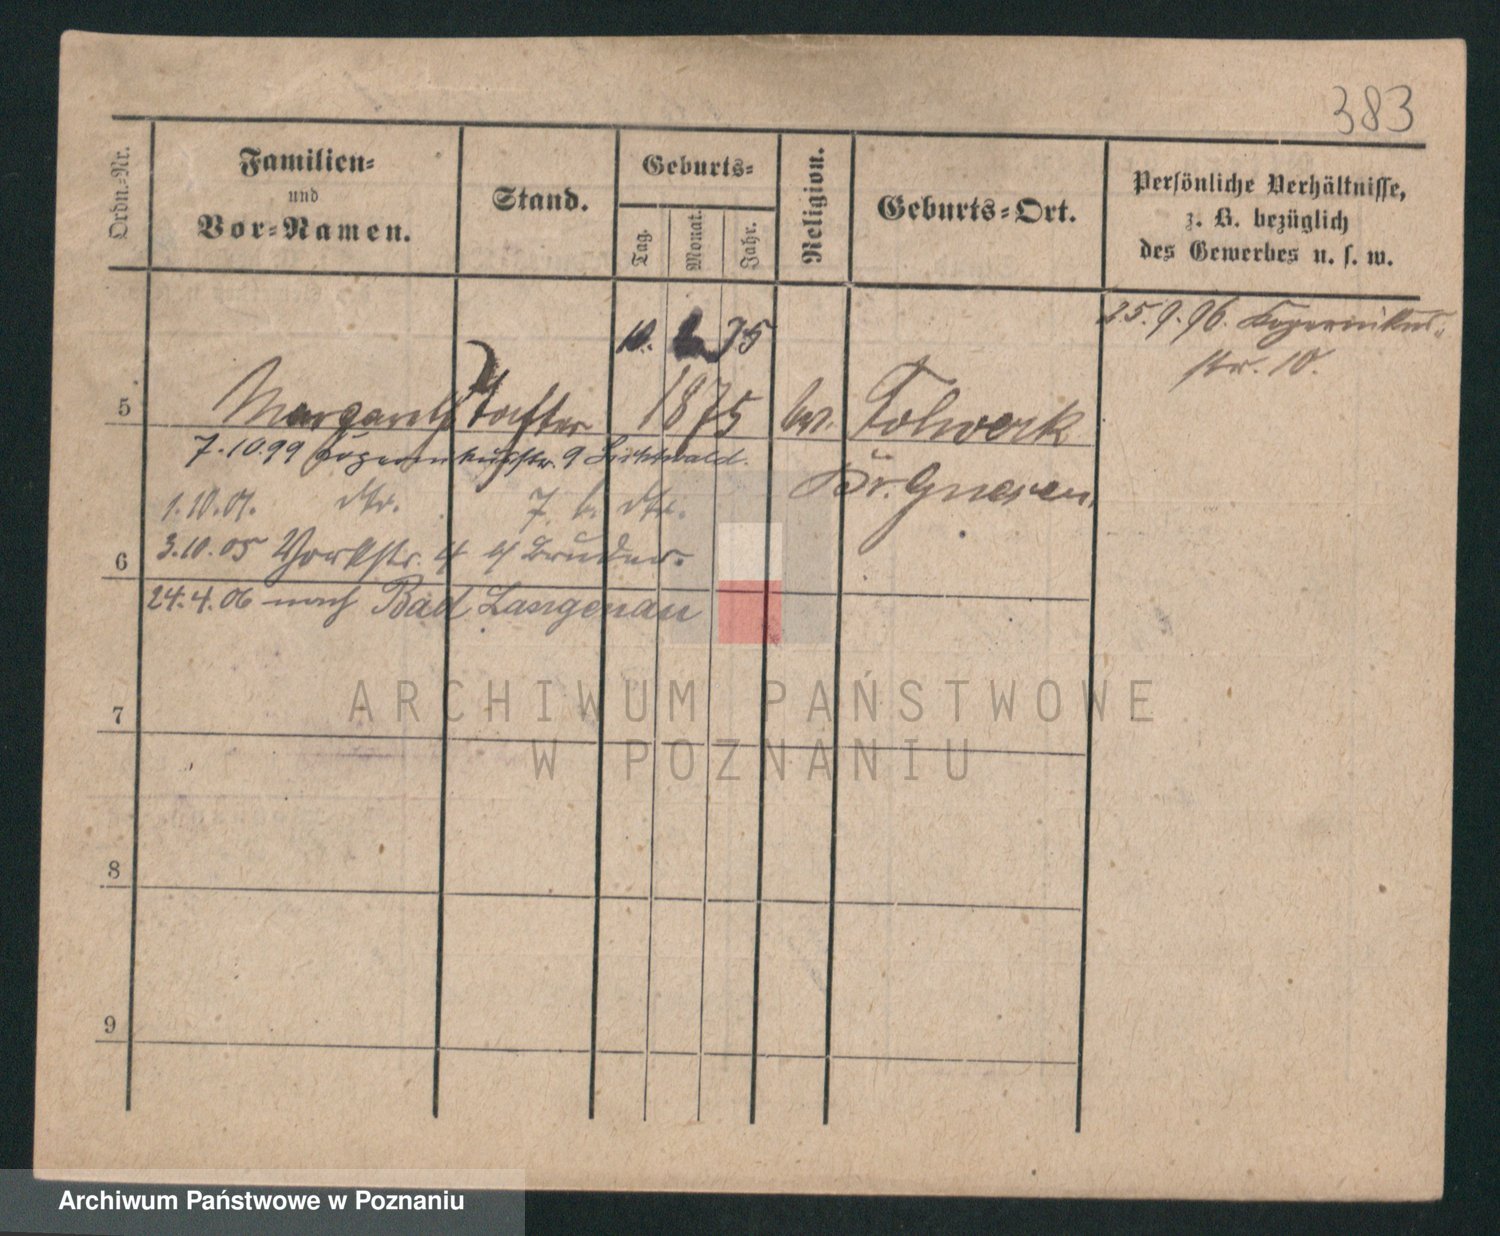 383
Ordn.-Nr.
Familien-
und
Vor-Namen.
Stand.
Geburts-
Tag.
Monat.
Jahr.
Religion.
Geburts-Ort.
Persönliche Verhältnisse,
z. B. bezüglich
des Gewerbes u. s. w.
25.9.96. Kopernikus-
str. 10.
10. 75
5 Margareth Tochter 1875 ev. Folwerk
Kr. Gnesen.
7.10.99 Kopernikusstr. 9
1.10.01. dto. 7 b. dto.
6
3.10.05 Yorkstr. 4 b/ Bruder.
24.4.06 nach Bad Langenau
7
8
9
ARCHIWUM PAŃSTWOWE
W POZNANIU
Archiwum Państwowe w Poznaniu